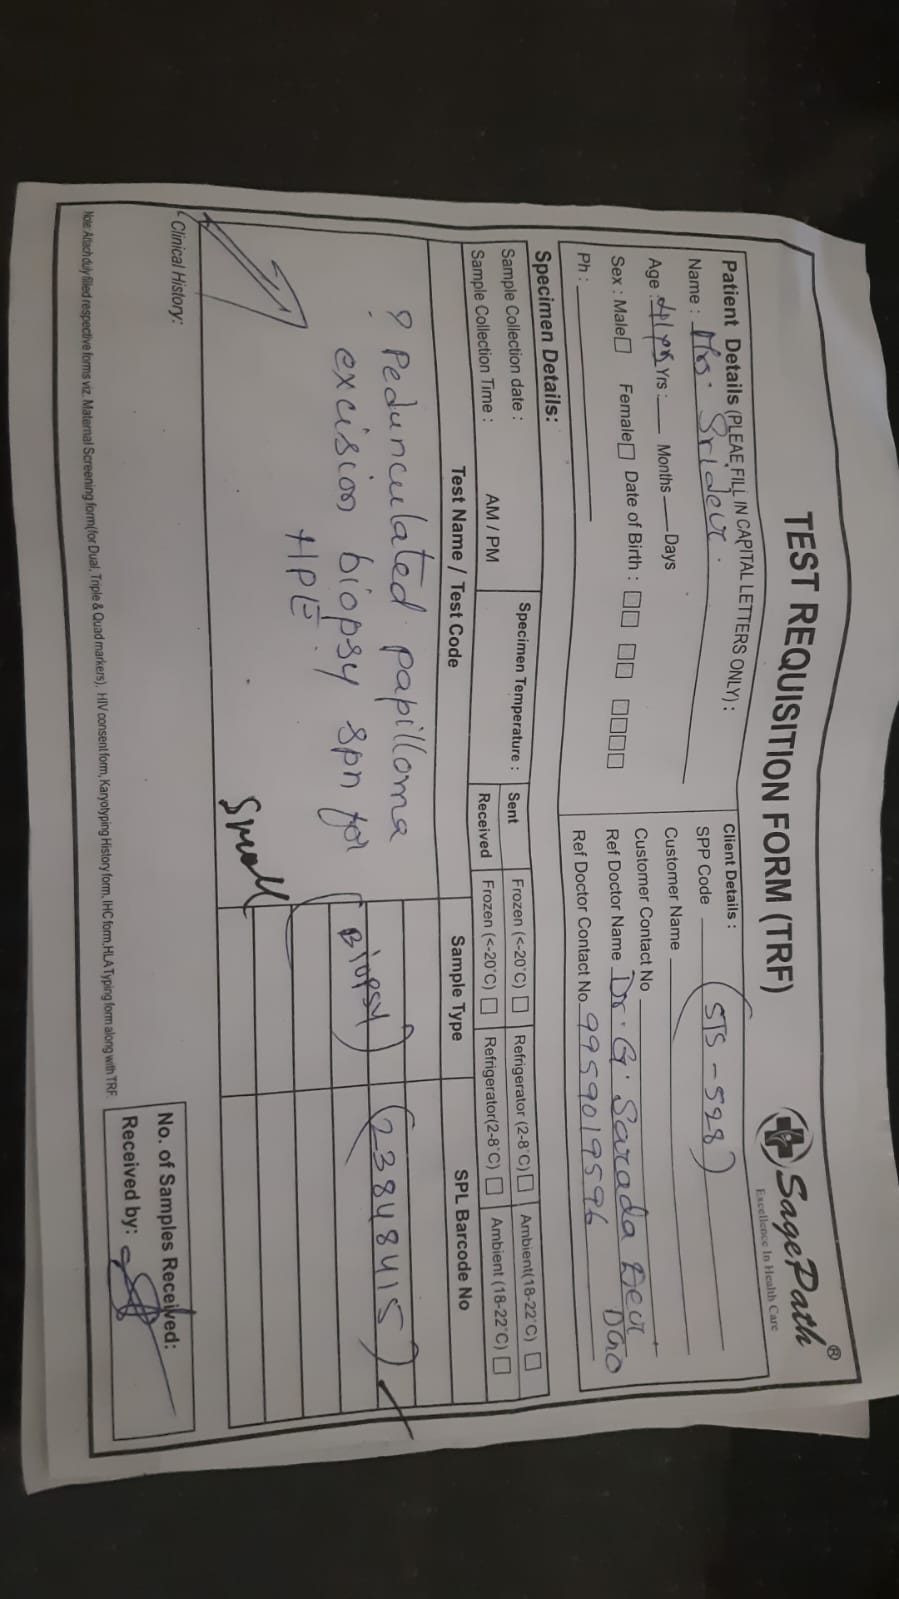 TEST REQUISITION FORM (TRF)
SagePath®
Excellence In Health Care
Patient Details (PLEAE FILL IN CAPITAL LETTERS ONLY) :
Name : Mrs. Sridevi.
Age : 41yrs Yrs : Months Days
Sex : Male Female Date of Birth :
Ph :
Client Details :
SPP Code STS - 528
Customer Name
Customer Contact No
Ref Doctor Name Dr. G. Sarada Devi
DGO
Ref Doctor Contact No 9959019596
Specimen Details:
Sample Collection date :
Sample Collection Time : AM / PM
Specimen Temperature :
Sent Frozen (<-20°C) Refrigerator (2-8°C) Ambient(18-22°C)
Received Frozen (<-20°C) Refrigerator(2-8°C) Ambient (18-22°C)
Test Name / Test Code Sample Type SPL Barcode No
? Pedunculated papilloma
excision biopsy spn for
HPE.
Biopsy
23848415
Small
Clinical History:
No. of Samples Received:
Received by:
Note: Attach duly filled respective forms viz. Maternal Screening form(for Dual, Triple & Quad markers), HIV consent form, Karyotyping History form, IHC form,HLA Typing form along with TRF.